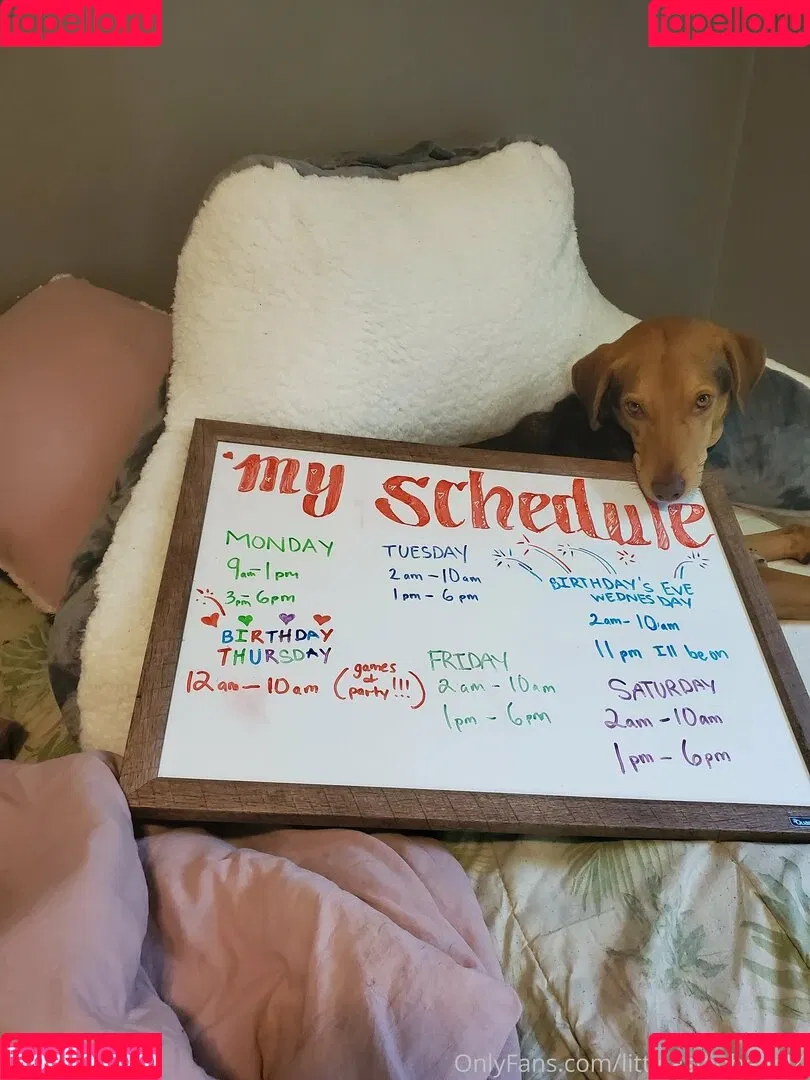 fapello.ru
fapello.ru
my schedule
MONDAY
9am-1pm
3pm-6pm
TUESDAY
2am-10am
1pm-6pm
BIRTHDAY'S EVE
WEDNESDAY
2am-10am
11pm Ill be on
BIRTHDAY
THURSDAY
12am-10am (games & party!!!)
FRIDAY
2am-10am
1pm-6pm
SATURDAY
2am-10am
1pm-6pm
fapello.ru
fapello.ru
OnlyFans.com/litt